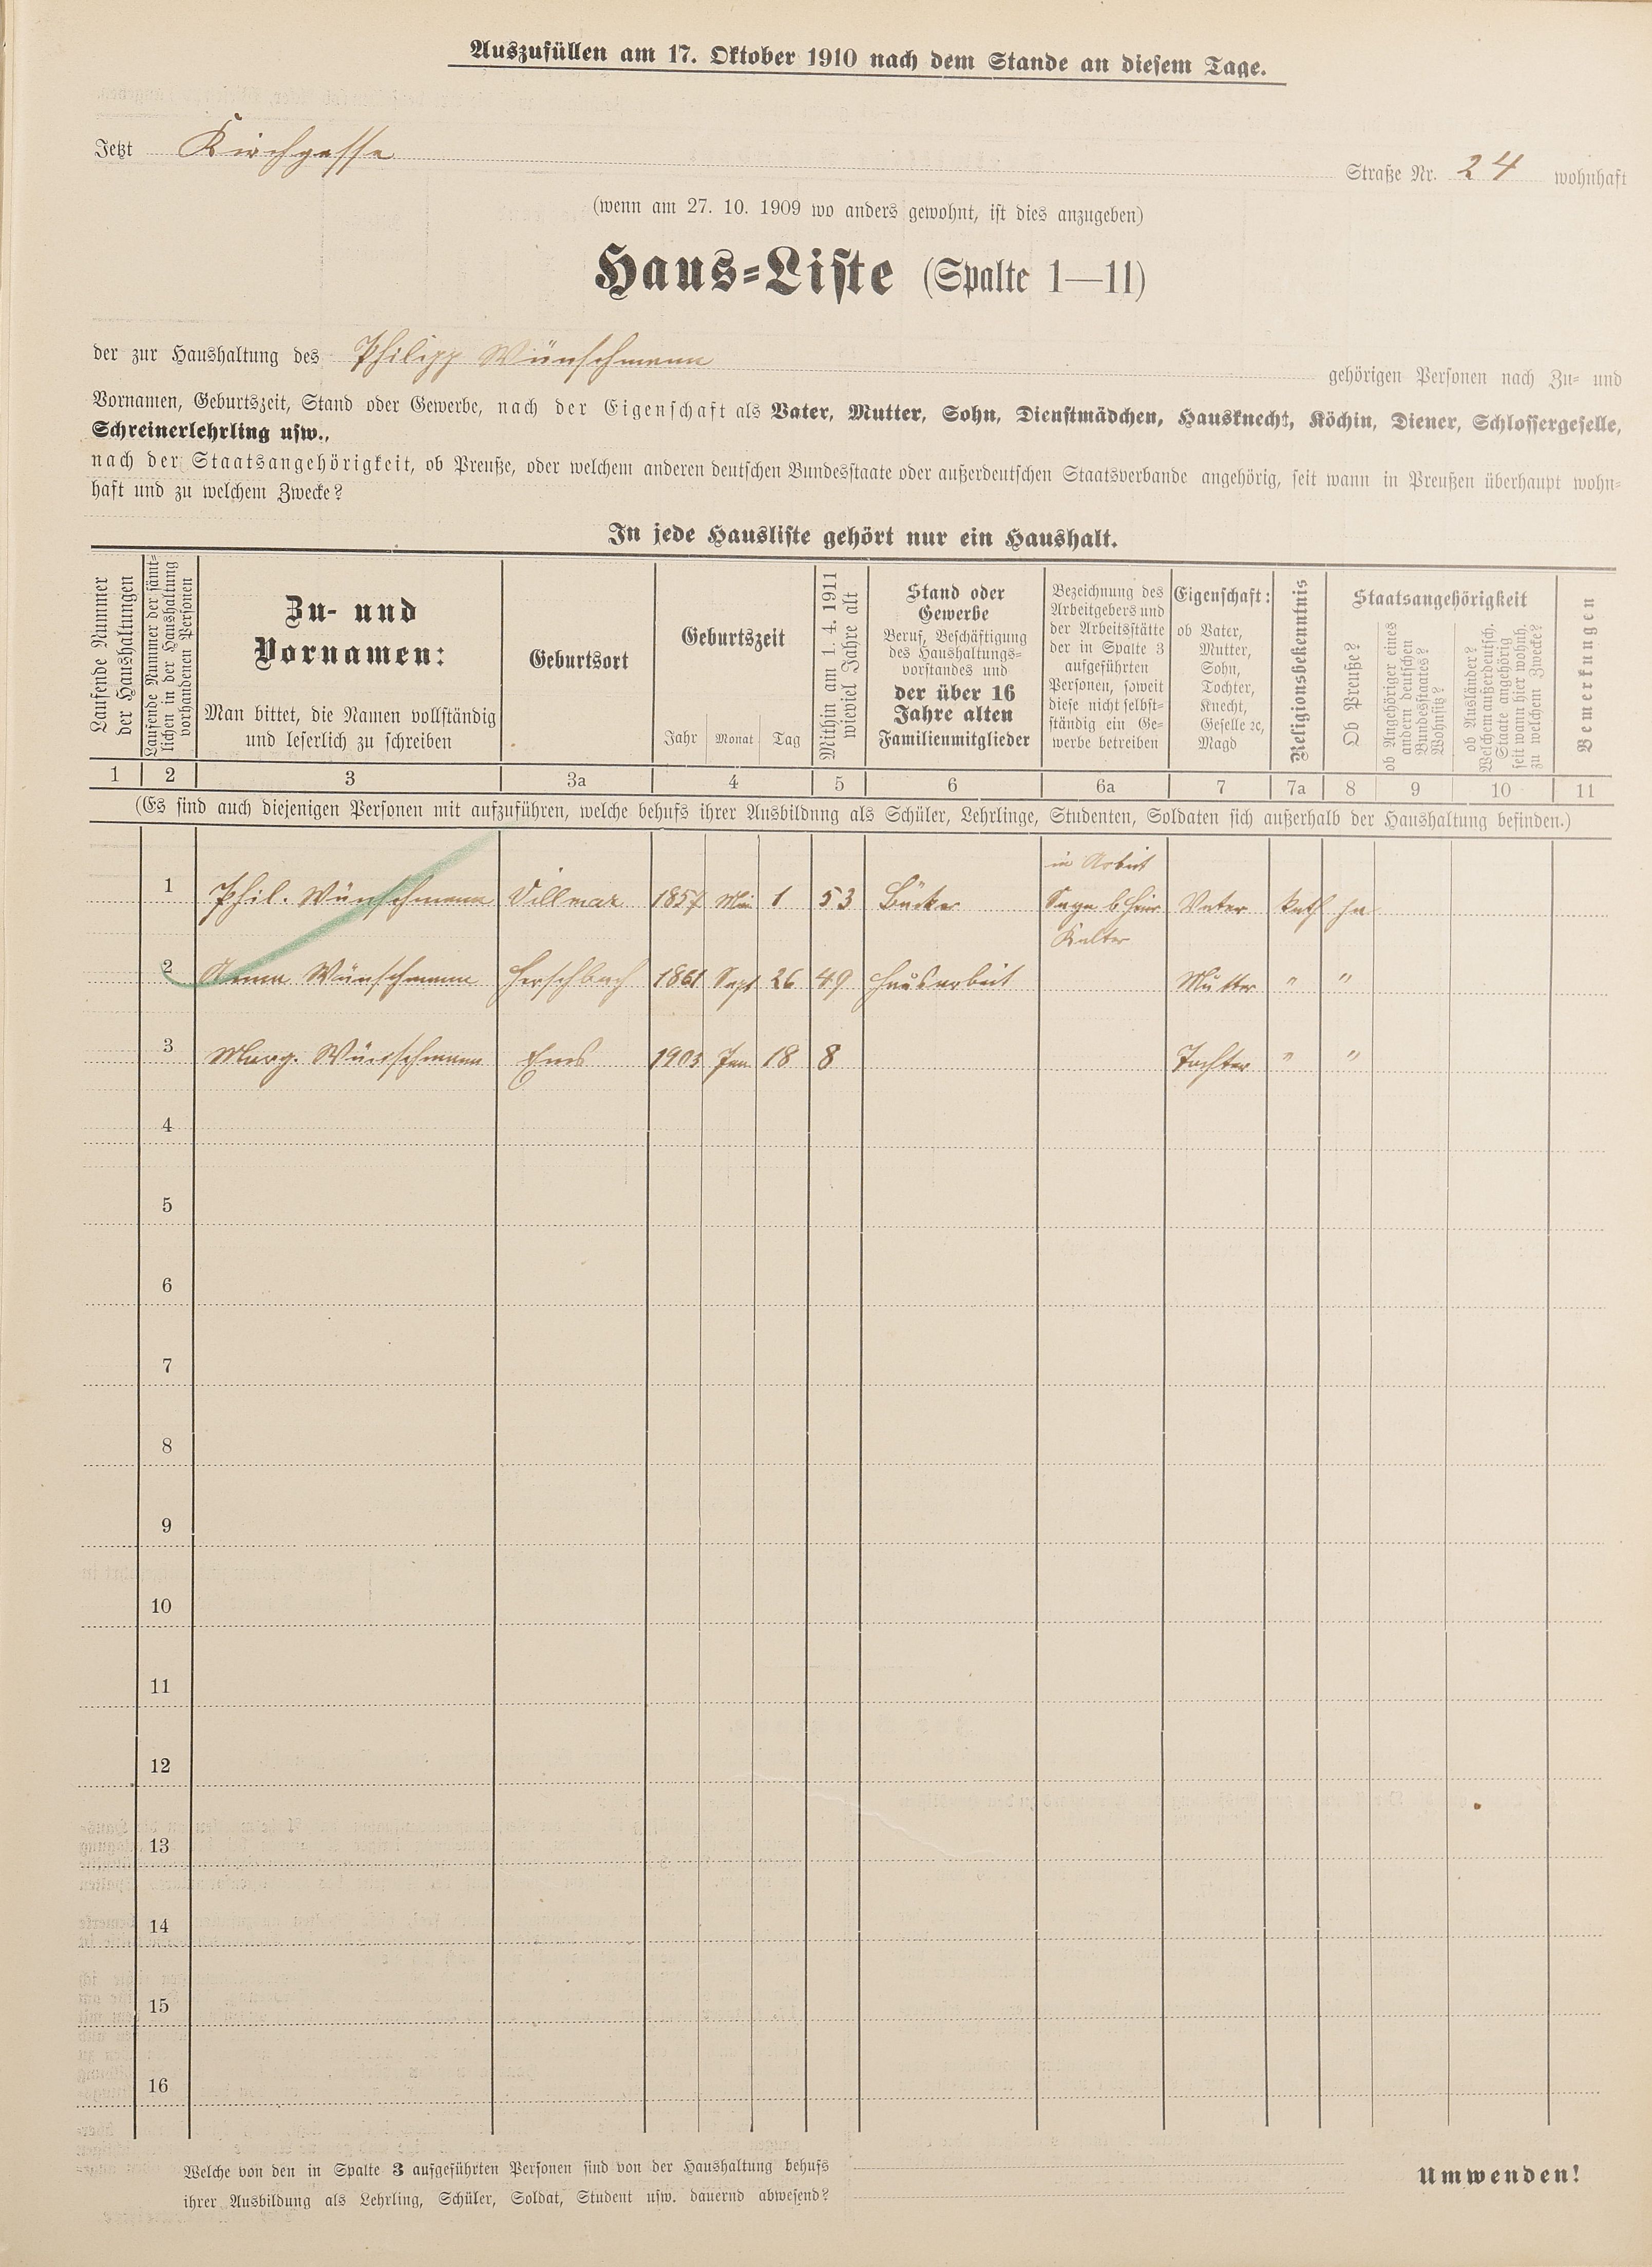 Auszufüllen am 17. Oktober 1910 nach dem Stande an diesem Tage.
Jetzt Kirchgasse Straße Nr. 24 wohnhaft
(wenn am 27. 10. 1909 wo anders gewohnt, ist dies anzugeben)
Haus-Liste (Spalte 1—11)
der zur Haushaltung des Philipp Wünschmann gehörigen Personen nach Zu- und
Vornamen, Geburtszeit, Stand oder Gewerbe, nach der Eigenschaft als Vater, Mutter, Sohn, Dienstmädchen, Hausknecht, Köchin, Diener, Schlossergeselle,
Schreinerlehrling usw.,
nach der Staatsangehörigkeit, ob Preuße, oder welchem anderen deutschen Bundesstaate oder außerdeutschen Staatsverbande angehörig, seit wann in Preußen überhaupt wohn-
haft und zu welchem Zwecke?
In jede Hausliste gehört nur ein Haushalt.
Laufende Nummer
der Haushaltungen
Laufende Nummer der sämt-
lichen in der Haushaltung
vorhandenen Personen
Zu- und
Vornamen:
Man bittet, die Namen vollständig
und leserlich zu schreiben
Geburtsort
Geburtszeit
Jahr Monat Tag
Mithin am 1. 4. 1911
wieviel Jahre alt
Stand oder
Gewerbe
Beruf, Beschäftigung
des Haushaltungs-
vorstandes und
der über 16
Jahre alten
Familienmitglieder
Bezeichnung des
Arbeitgebers und
der Arbeitsstätte
der in Spalte 3
aufgeführten
Personen, soweit
diese nicht selbst-
ständig ein Ge-
werbe betreiben
Eigenschaft:
ob Vater,
Mutter,
Sohn,
Tochter,
Knecht,
Geselle ꝛc,
Magd
Religionsbekenntnis
Staatsangehörigkeit
Ob Preuße?
ob Angehöriger eines
andern deutschen
Bundesstaates?
Wohnsitz?
ob Ausländer?
Welchem außerdeutsch.
Staate angehörig
seit wann hier wohnh.
zu welchem Zwecke?
Bemerkungen
1 2 3 3a 4 5 6 6a 7 7a 8 9 10 11
(Es sind auch diejenigen Personen mit aufzuführen, welche behufs ihrer Ausbildung als Schüler, Lehrlinge, Studenten, Soldaten sich außerhalb der Haushaltung befinden.)
in Arbeit
1 Phil. Wünschmann Villmar 1857 Mai 1 53 Vater kath ja
2 Anna Wünschmann Herschbach 1861 Sept 26 49 Hausarbeit Mutter " "
3 Marg. Wünschmann Ems 1903 Jan. 18 8 Tochter " "
4
5
6
7
8
9
10
11
12
13
14
15
16
Welche von den in Spalte 3 aufgeführten Personen sind von der Haushaltung behufs
ihrer Ausbildung als Lehrling, Schüler, Soldat, Student usw. dauernd abwesend?
Umwenden!